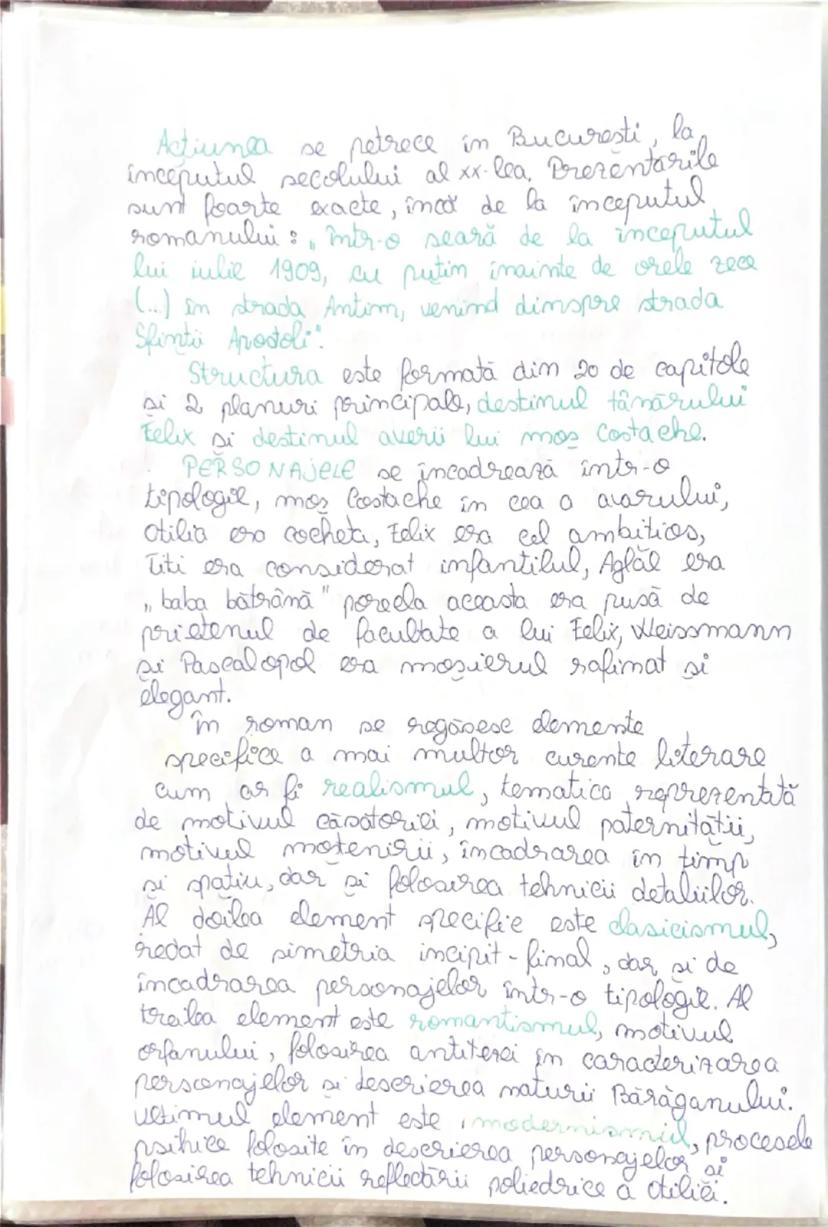 Acțiunea se petrece în București, la
începutul secolului al xx-lea. Prezentările
sunt foarte exacte, încă de la începutul
romanului: „într-o seară de la începutul
lui iulie 1909, cu puțin înainte de orele zece
(...) în strada Antim, venind dinspre strada
Sfinții Apostoli".
Structura este formată din 20 de capitole
și 2 planuri principale, destinul tânărului
Felix și destinul averii lui moș Costache.
PERSONAJELE se încadrează într-o
tipologie, moș Costache în cea a avarului,
Otilia era cocheta, Felix era cel ambițios,
Titi era considerat infantilul, Aglăe era
„baba bătrână" porecla aceasta era pusă de
prietenul de facultate a lui Felix, Weissmann
și Pascalopol era moșierul rafinat și
elegant.
În roman se regăsesc elemente
specifice a mai multor curente literare
cum ar fi realismul, tematica reprezentată
de motivul căsătoriei, motivul paternității,
motivul moștenirii, încadrarea în timp
și spațiu, dar și folosirea tehnicii detaliilor.
Al doilea element specific este clasicismul,
redat de simetria incipit-final, dar și de
încadrarea personajelor într-o tipologie. Al
treilea element este romantismul, motivul
orfanului, folosirea antitezei în caracterizarea
personajelor și descrierea naturii Bărăganului.
Ultimul element este modernismul, procesele
psihice folosite în descrierea personajelor și
folosirea tehnicii reflectării poliedrice a Otiliei.